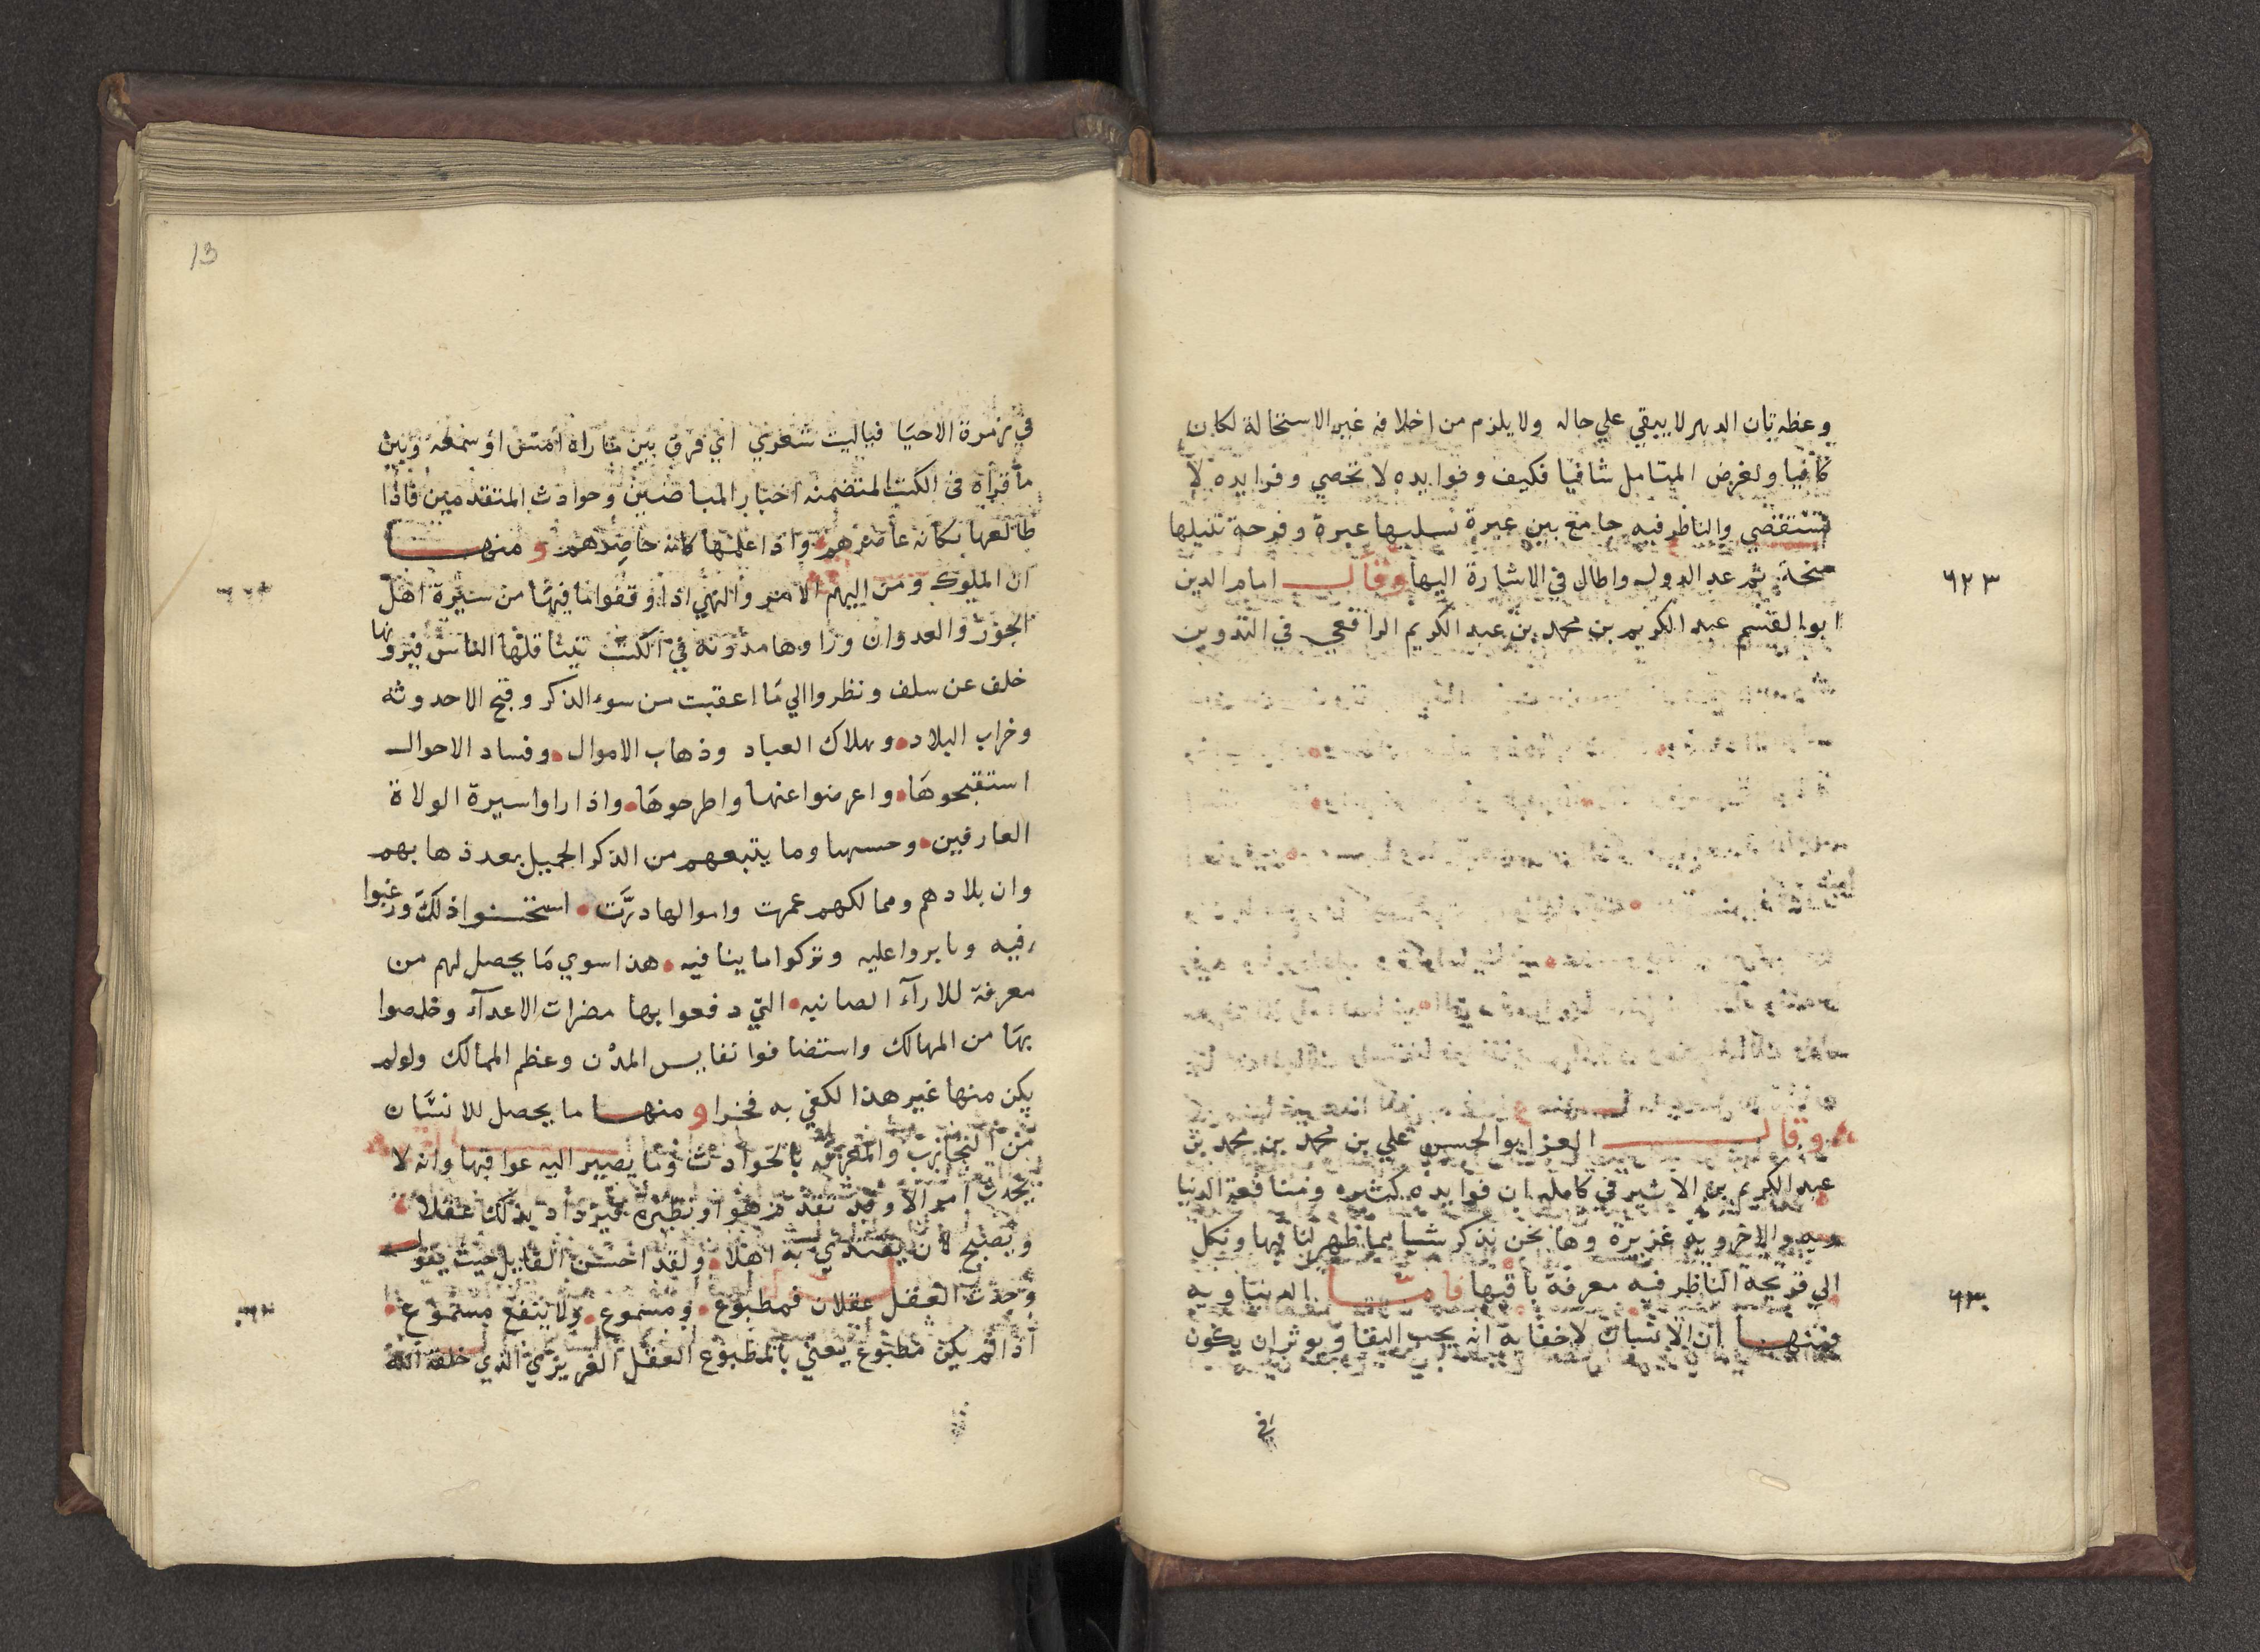 وعظه بان الدهر لا يبقي علي حاله ولا يلزم من اخلاقه غير الاستحالة لكان
كافيا ولغرض المتامل شافيا فكيف وفوايده لا تحصي وفرايده لا
تستقضي والناظر فيه جامع بين عبرة تسلبها عبرة وفرحة تنيلها
منحة ثم عد الدول واطال في الاشارة اليها وقال امام الدين
٦٢٣
ابو القسم عبد الكريم بن محمد بن عبد الكريم الرافعي في التدوين
وقال العز ابو الحسن علي بن محمد بن محمد بن
عبد الكريم بن الاثير في كامله ان فوايده كثيره ومنافعه الدنيا
ويه والاخرويه غزيرة وها نحن نذكر شيا مما ظهر لنا فيها ونكل
الي قريحة الناظر فيه معرفة باقيها فامّا الدنياويه
٦٣٠
فمنها ان الانسان لا خفا به انه يحب البقا ويوثر ان يكون
في
13
في زمرة الاحيا فياليت شعري اي فرق بين ما راه امس او سمعه وبين
ما قراه في الكتب المتضمنه اخبار الماضين وحوادث المتقدمين فاذا
طالعها فكانه عاصرهم واذا علمها فكانه حاضرهم ومنها
ان الملوك ومن اليهم الامر والنهي اذا وقفوا ما فيها من سيرة اهل
الجور والعدوان وراوها مدونه في الكتب يتناقلها الناس فيرويها
خلف عن سلف ونظروا الي ما اعقبت من سوء الذكر وقبح الاحدوثه
وخراب البلاد وهلاك العباد وذهاب الاموال وفساد الاحوال
استقبحوها واعرضوا عنها واطرحوها واذا راوا سيرة الولاة
العارفين وحسنها وما يتبعهم من الذكر الجميل بعد ذهابهم
وان بلادهم وممالكهم عمرت واموالها درّت استحسنوا ذلك ورغبوا
فيه وثابروا عليه وتركوا ما ينافيه هذا سوي ما يحصل لهم من
معرفة للارآء الصائبه التي دفعوا بها مضرات الاعدآء وخلصوا
بها من المهالك واستضافوا نفايس المدن وعظم الممالك ولو لم
يكن منها غير هذا لكفي به فخرا ومنها ما يحصل للانسان
من التجارب والمعرفه بالحوادث وما يصير اليه عواقبها وانه لا
يحدث امر الا وقد تقدم هو او نظيره فيزداد بذلك عقلا
ويصبح لان يقتدي به اهلا ولقد احسن القايل حيث يقول
وجدت العقل عقلان فمطبوع ومسموع ولا ينفع مسموع
اذا لم يكن مطبوع يعني بالمطبوع العقل الغريزي الذي خلقه الله